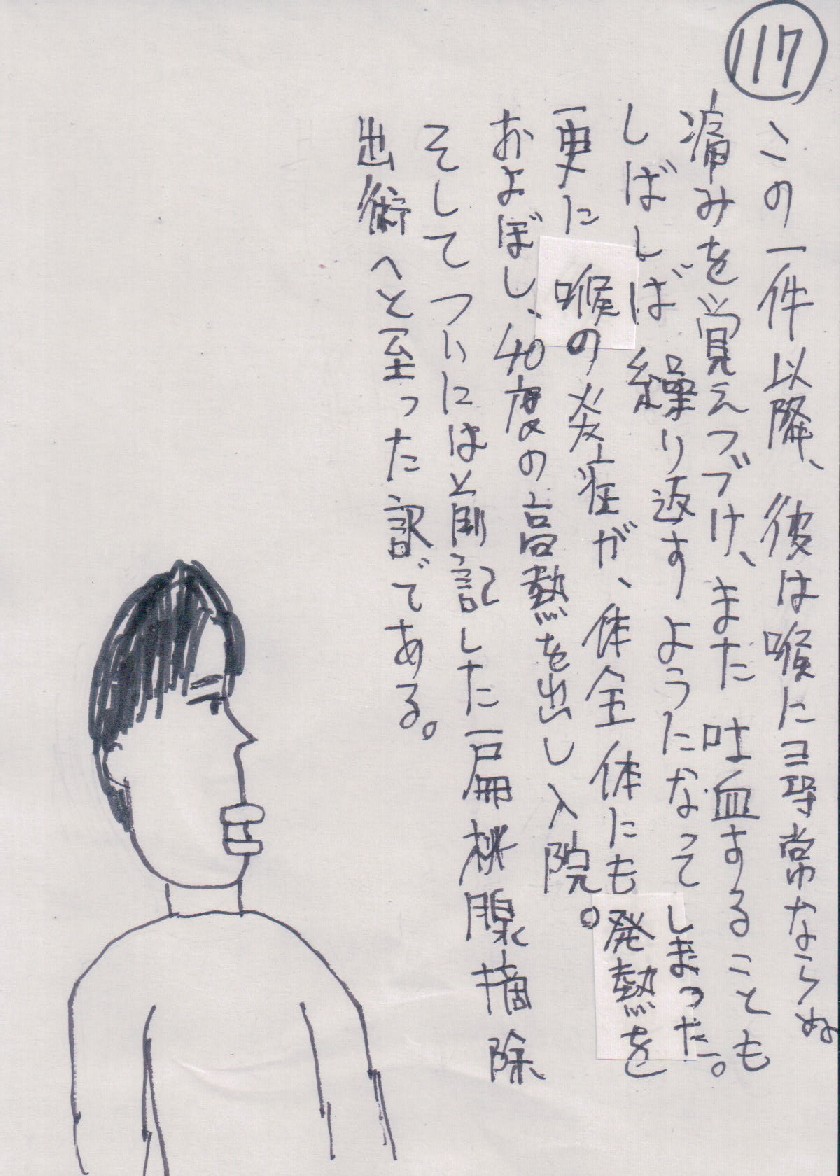 117
この一件以降、彼は喉に尋常ならぬ
痛みを覚えつづけ、また吐血することも
しばしば繰り返すようになってしまった。
更に喉の炎症が、体全体にも発熱を
およぼし、40度の高熱を出し入院。
そしてついには前記した扁桃腺摘除
出術へと至った訳である。